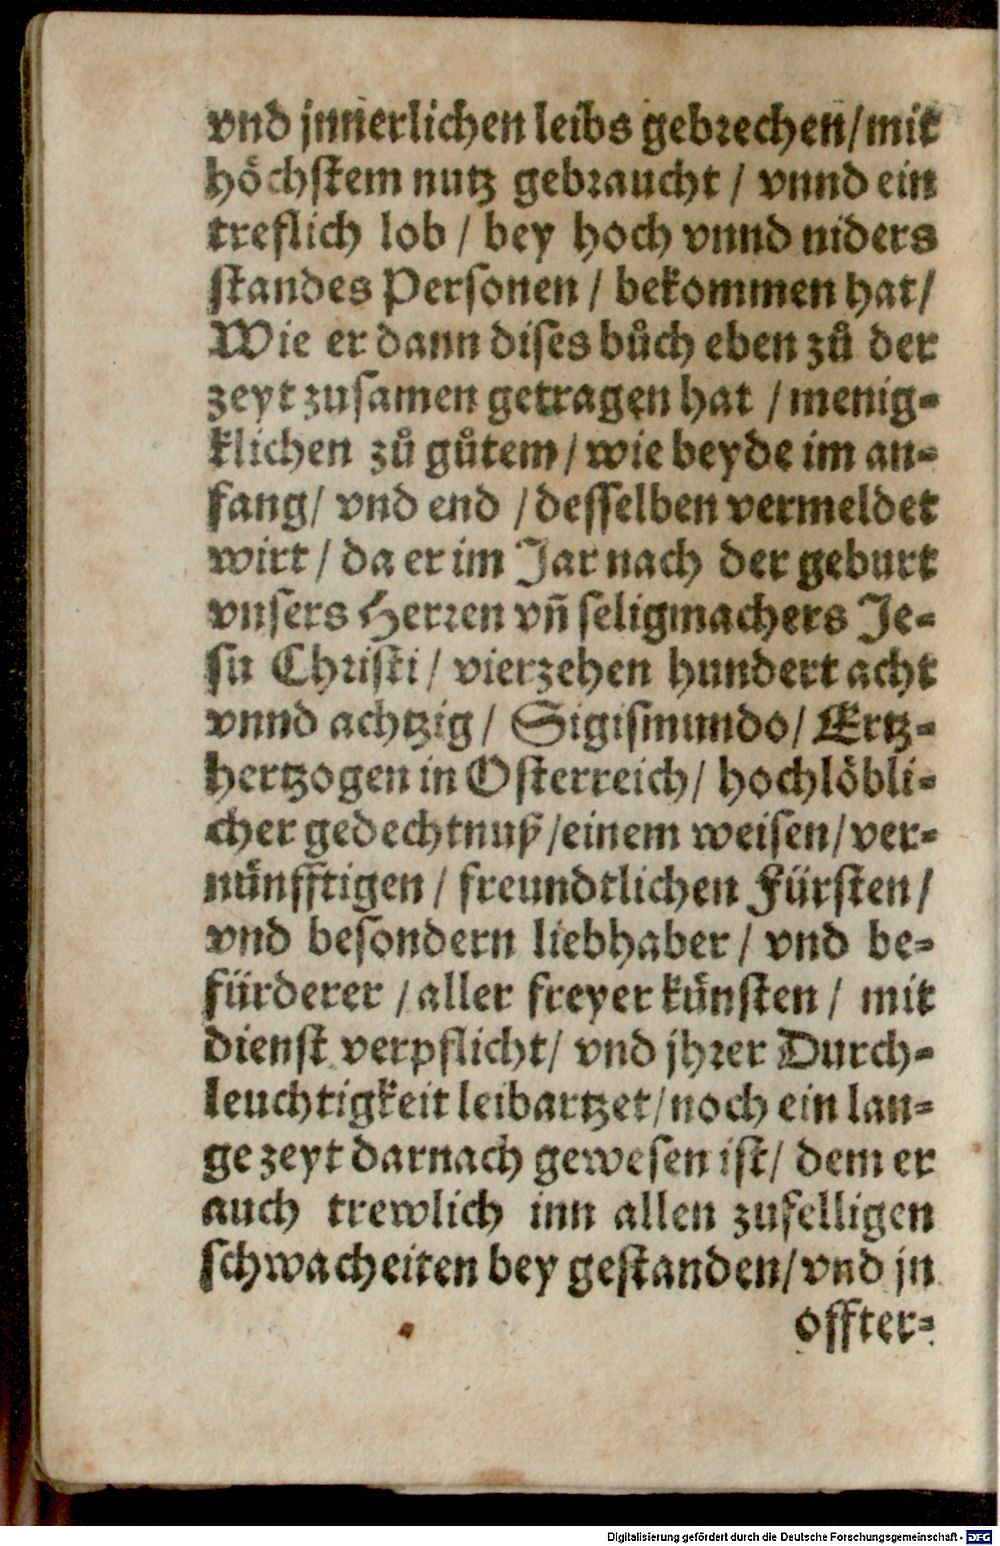 vnd jnnerlichen leibs gebrechen/mit
höchstem nutz gebraucht / vnnd ein
treflich lob / bey hoch vnnd niders
standes Personen / bekommen hat/
Wie er dann dises bůch eben zů der
zeyt zusamen getragen hat / menig-
klichen zů gůtem / wie beyde im an-
fang/ vnd end / desselben vermeldet
wirt / da er im Jar nach der geburt
vnsers Herren vñ seligmachers Je-
su Christi / vierzehen hundert acht
vnnd achtzig / Sigismundo / Ertz-
hertzogen in Osterreich / hochlöbli-
cher gedechtnuß /einem weisen/ ver-
nünfftigen / freundtlichen Fürsten /
vnd besondern liebhaber / vnd be-
fürderer / aller freyer künsten / mit
dienst verpflicht/ vnd jhrer Durch-
leuchtigkeit leibartzet/noch ein lan-
ge zeyt darnach gewesen ist/ dem er
auch trewlich inn allen zufelligen
schwacheiten bey gestanden/vnd jn
offter-
Digitalisierung gefördert durch die Deutsche Forschungsgemeinschaft - DFG